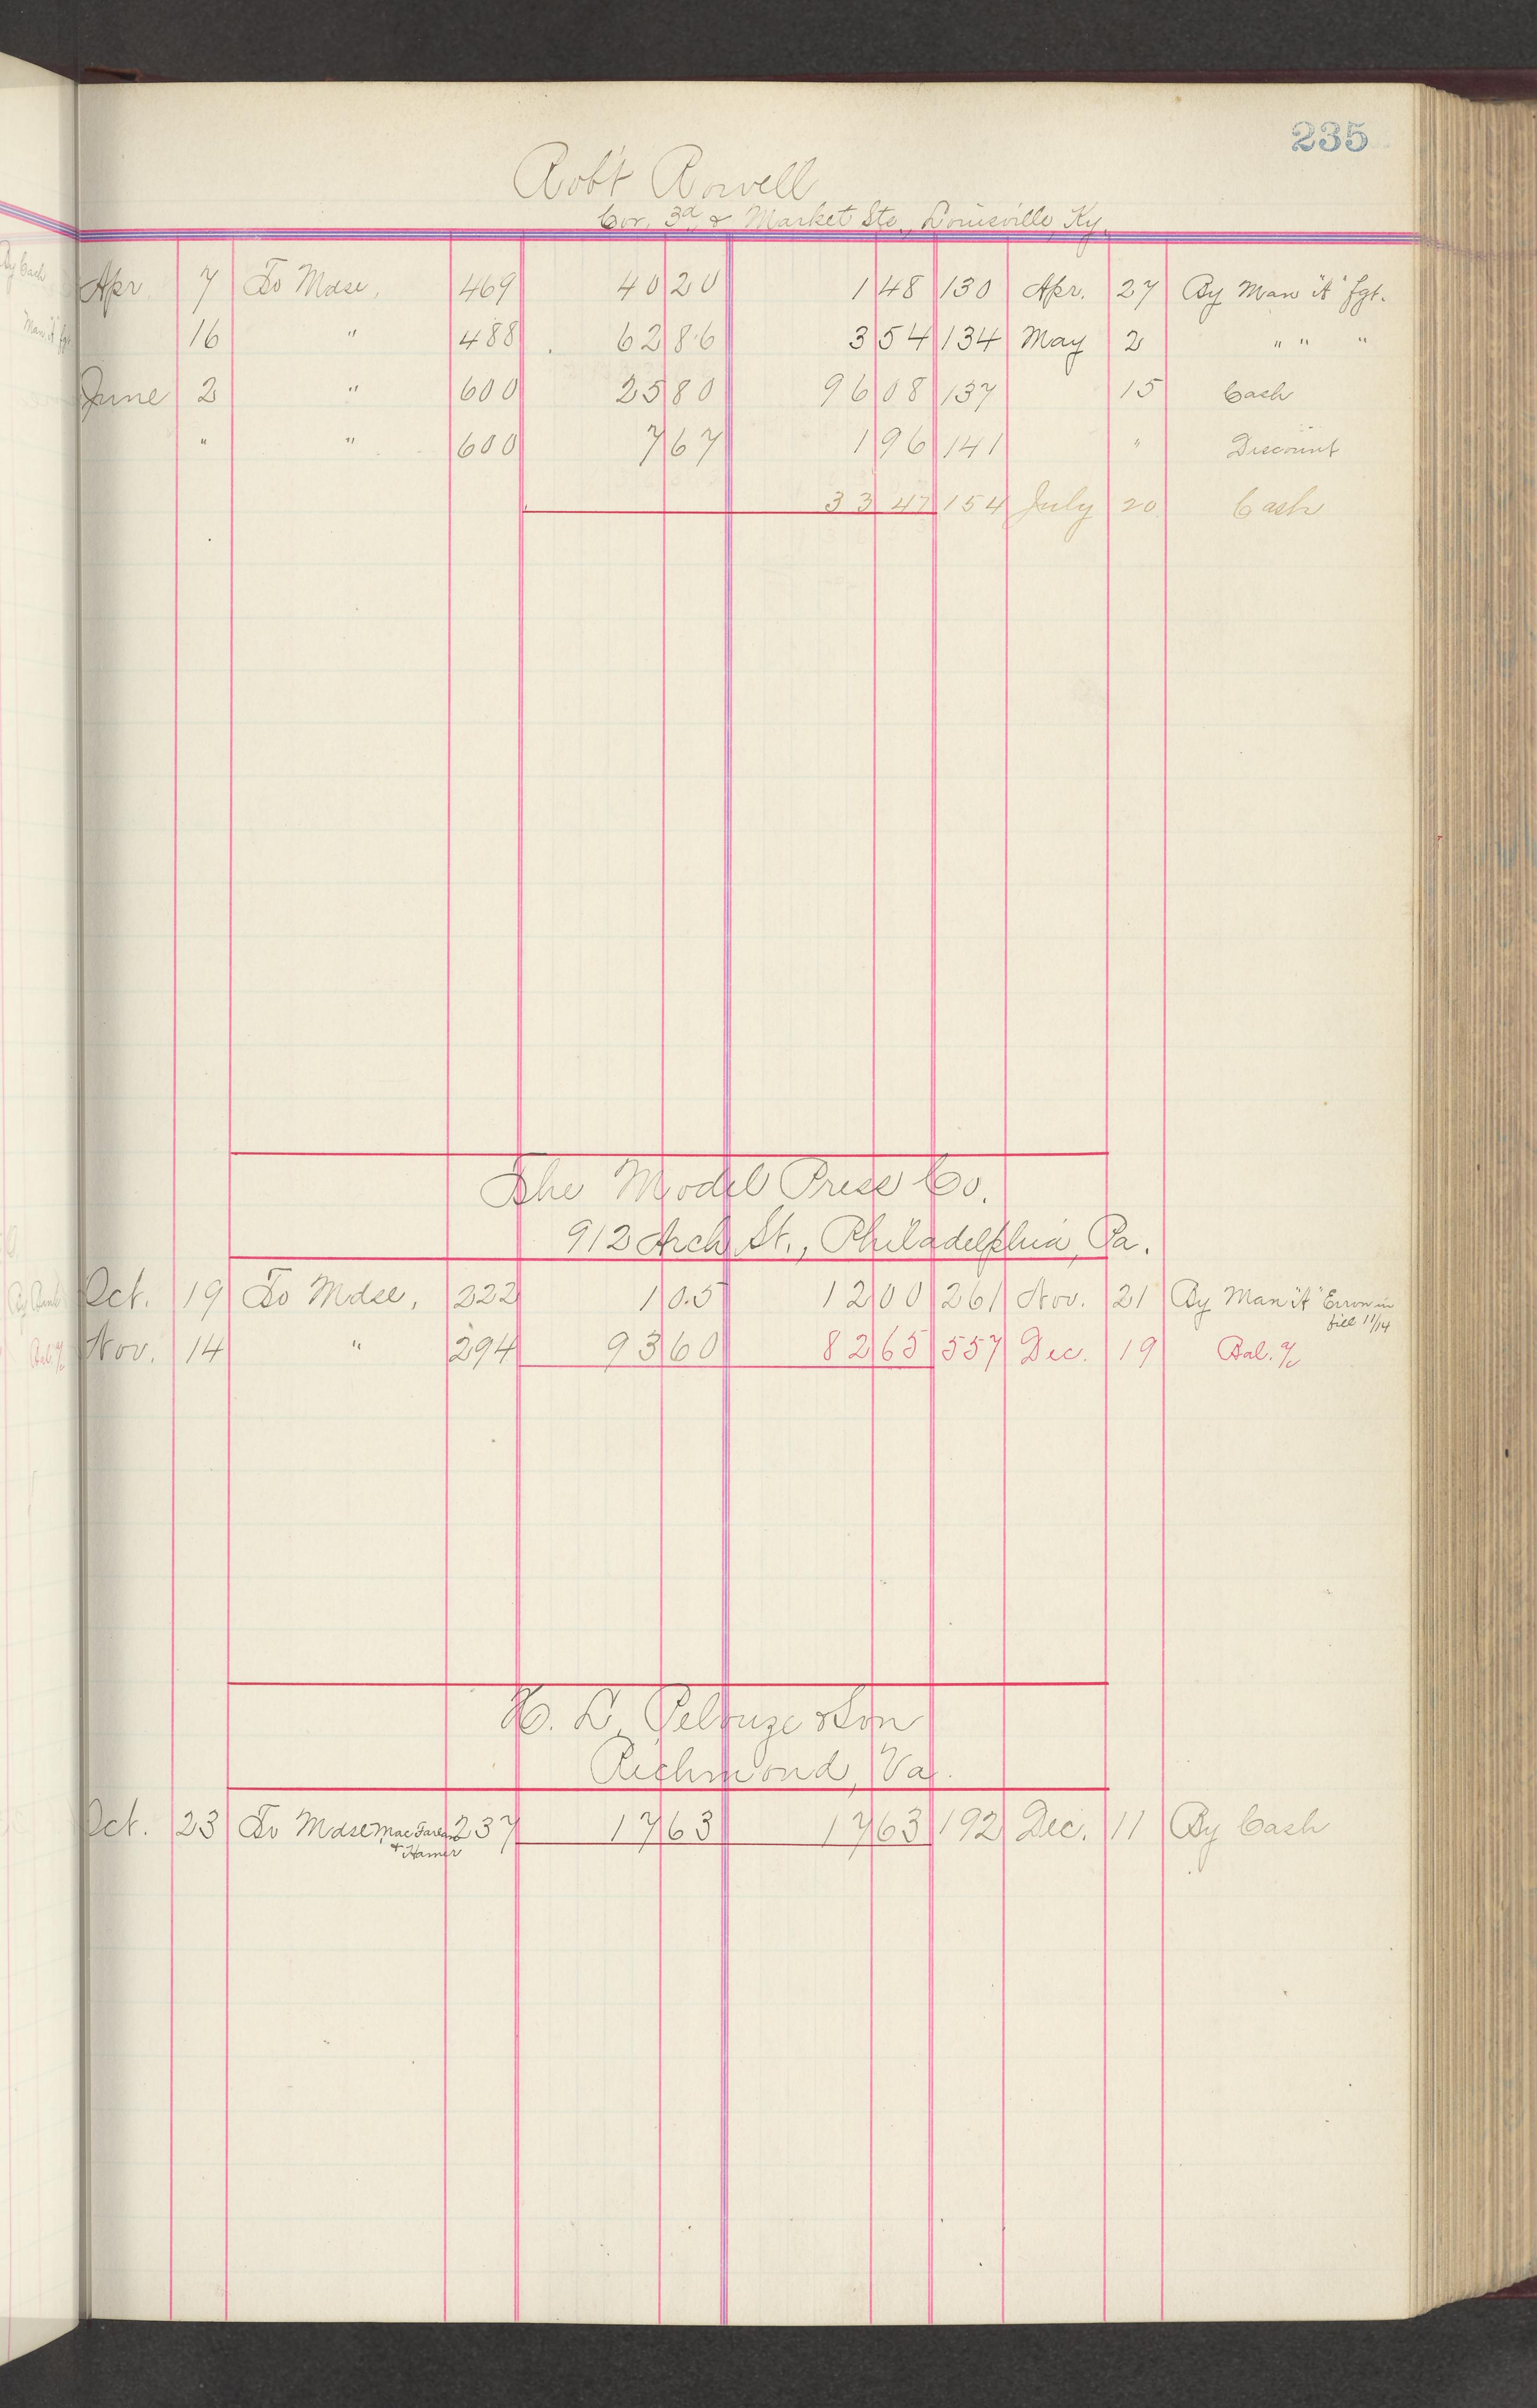 235
Rob't Rowell
Cor. 3d & Market Sts., Louisville, Ky.
Apr. 7 To Mdse, 469 40 20 1 48 130 Apr. 27 By Man "A" fgt.
16 " 488 62 86 3 54 134 May 2 " " "
June 2 " 600 25 80 96 08 137 15 Cash
" " 600 7 67 1 96 141 " Discount
33 47 154 July 20 Cash
The Model Press Co.
912 Arch St., Philadelphia, Pa.
Oct. 19 To Mdse, 222 1 05 12 00 261 Nov. 21 By Man "A" Error in
bill 11/14
Nov. 14 " 294 93 60 82 65 557 Dec. 19 Bal. %
H. L. Pelouze & Son
Richmond, Va.
Oct. 23 To Mdse 237 17 63 17 63 192 Dec. 11 By Cash
& Hamer